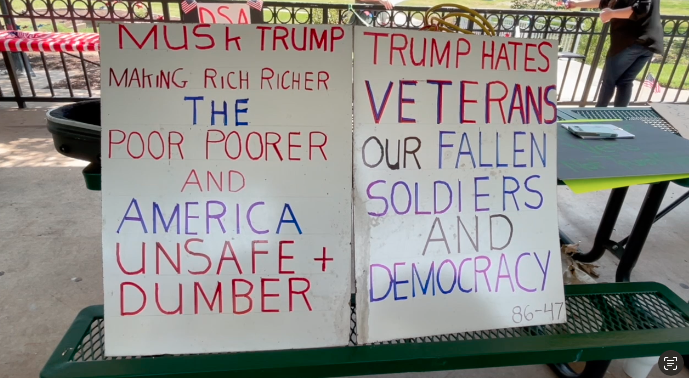 DSA
MUSK TRUMP
MAKING RICH RICHER
THE
POOR POORER
AND
AMERICA
UNSAFE +
DUMBER
TRUMP HATES
VETERANS
OUR FALLEN
SOLDIERS
AND
DEMOCRACY
86-47